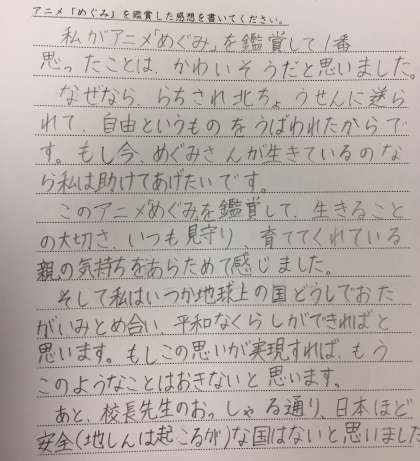 アニメ「めぐみ」を鑑賞した感想を書いてください。
私がアニメ「めぐみ」を鑑賞して1番
思ったことは、かわいそうだと思いました。
なぜなら、らちされ北ちょうせんに送ら
れて、自由というものをうばわれたからで
す。もし今、めぐみさんが生きているのな
ら私は助けてあげたいです。
このアニメ「めぐみ」を鑑賞して、生きること
の大切さ、いつも見守り、育ててくれている
親の気持ちをあらためて感じました。
そして私はいつか地球上の国どうしでおた
がいみとめ合い、平和なくらしができればと
思います。もしこの思いが実現すれば、もう
このようなことはおきないと思います。
あと、校長先生のおっしゃる通り、日本ほど
安全(地しんは起こるが)な国はないと思いました